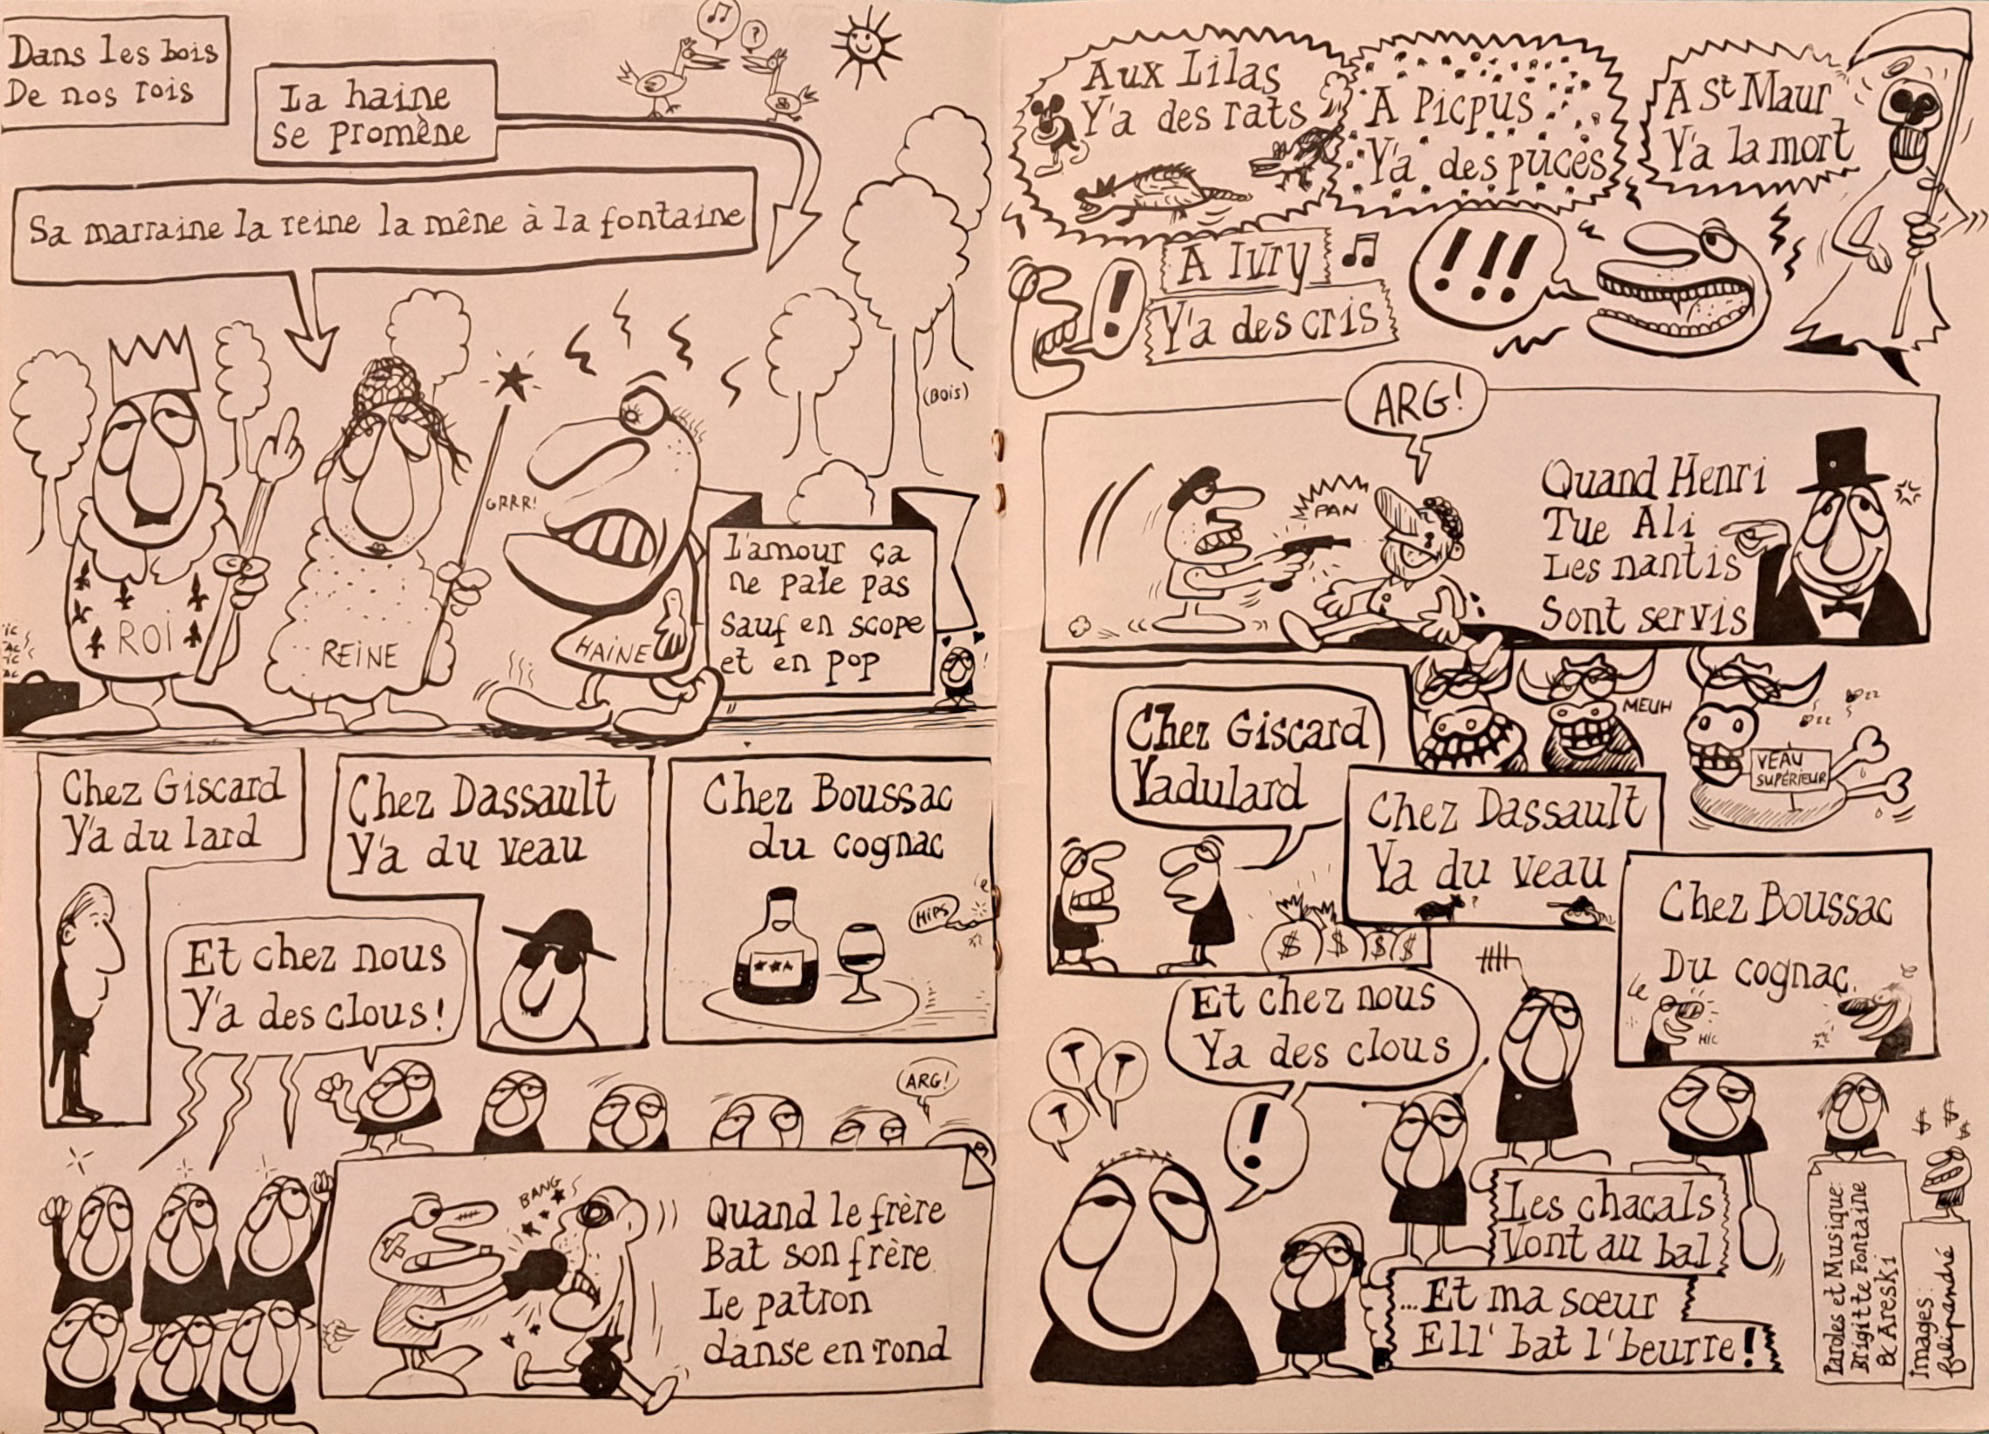 Dans les bois
De nos rois
La haine
se promène
♫
?
Sa marraine la reine la mène à la fontaine
(BOIS)
GRRR!
ROI
REINE
HAINE
L'amour ça
ne paie pas
sauf en scope
et en pop
!
Chez Giscard
Y'a du lard
Chez Dassault
Y'a du veau
Chez Boussac
du cognac
HIPS
Et chez nous
Y'a des clous!
ARG!
BANG
Quand le frère
Bat son frère
Le patron
danse en rond
Aux Lilas
Y'a des rats
A Picpus
Y'a des puces
A St Maur
Y'a la mort
!
A Ivry
Y'a des cris
!!!
ARG!
PAN
Quand Henri
Tue Ali
Les nantis
Sont servis
Chez Giscard
Yadulard
$ $ $ $
MEUH
VEAU
SUPÉRIEUR
Chez Dassault
Ya du veau
?
Chez Boussac
Du cognac
HIC
Et chez nous
Ya des clous
!
Les chacals
Vont au bal
...Et ma sœur
Ell' bat l'beurre!
$ $ $
Paroles et Musique:
Brigitte Fontaine
& Areski
Images:
filipandré